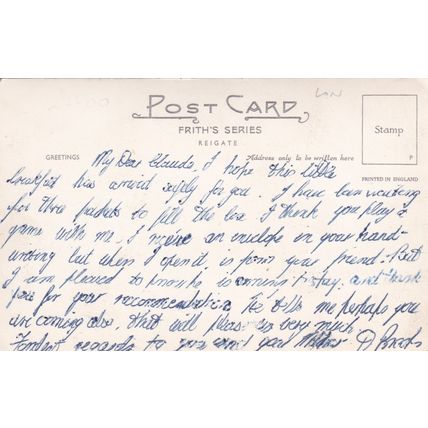 LON
POST CARD
FRITH'S SERIES
REIGATE
Stamp
P
GREETINGS
Address only to be written here
PRINTED IN ENGLAND
My Dear Claude, I hope this little
breakfast has arrived safely for you. I have been waiting
for three packets to fill the box I think you play a
game with me. I receive an envelope in your hand-
writing but when I open it is from your friend. But
I am pleased to know he is coming to stay. and thank
you for your recommendation He tells me perhaps you
are coming also. that will please us very much.
Fondest regards to you and you Mother D